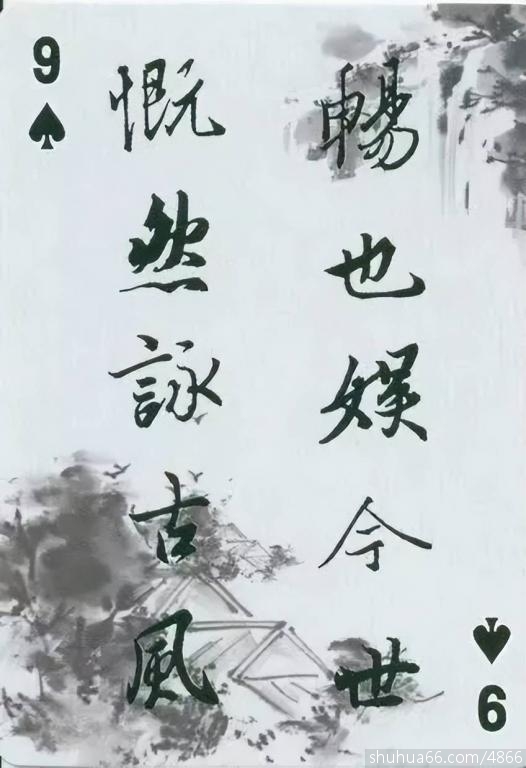 9
暢也娱今世
慨然詠古風
9
shuhua66.com/4866